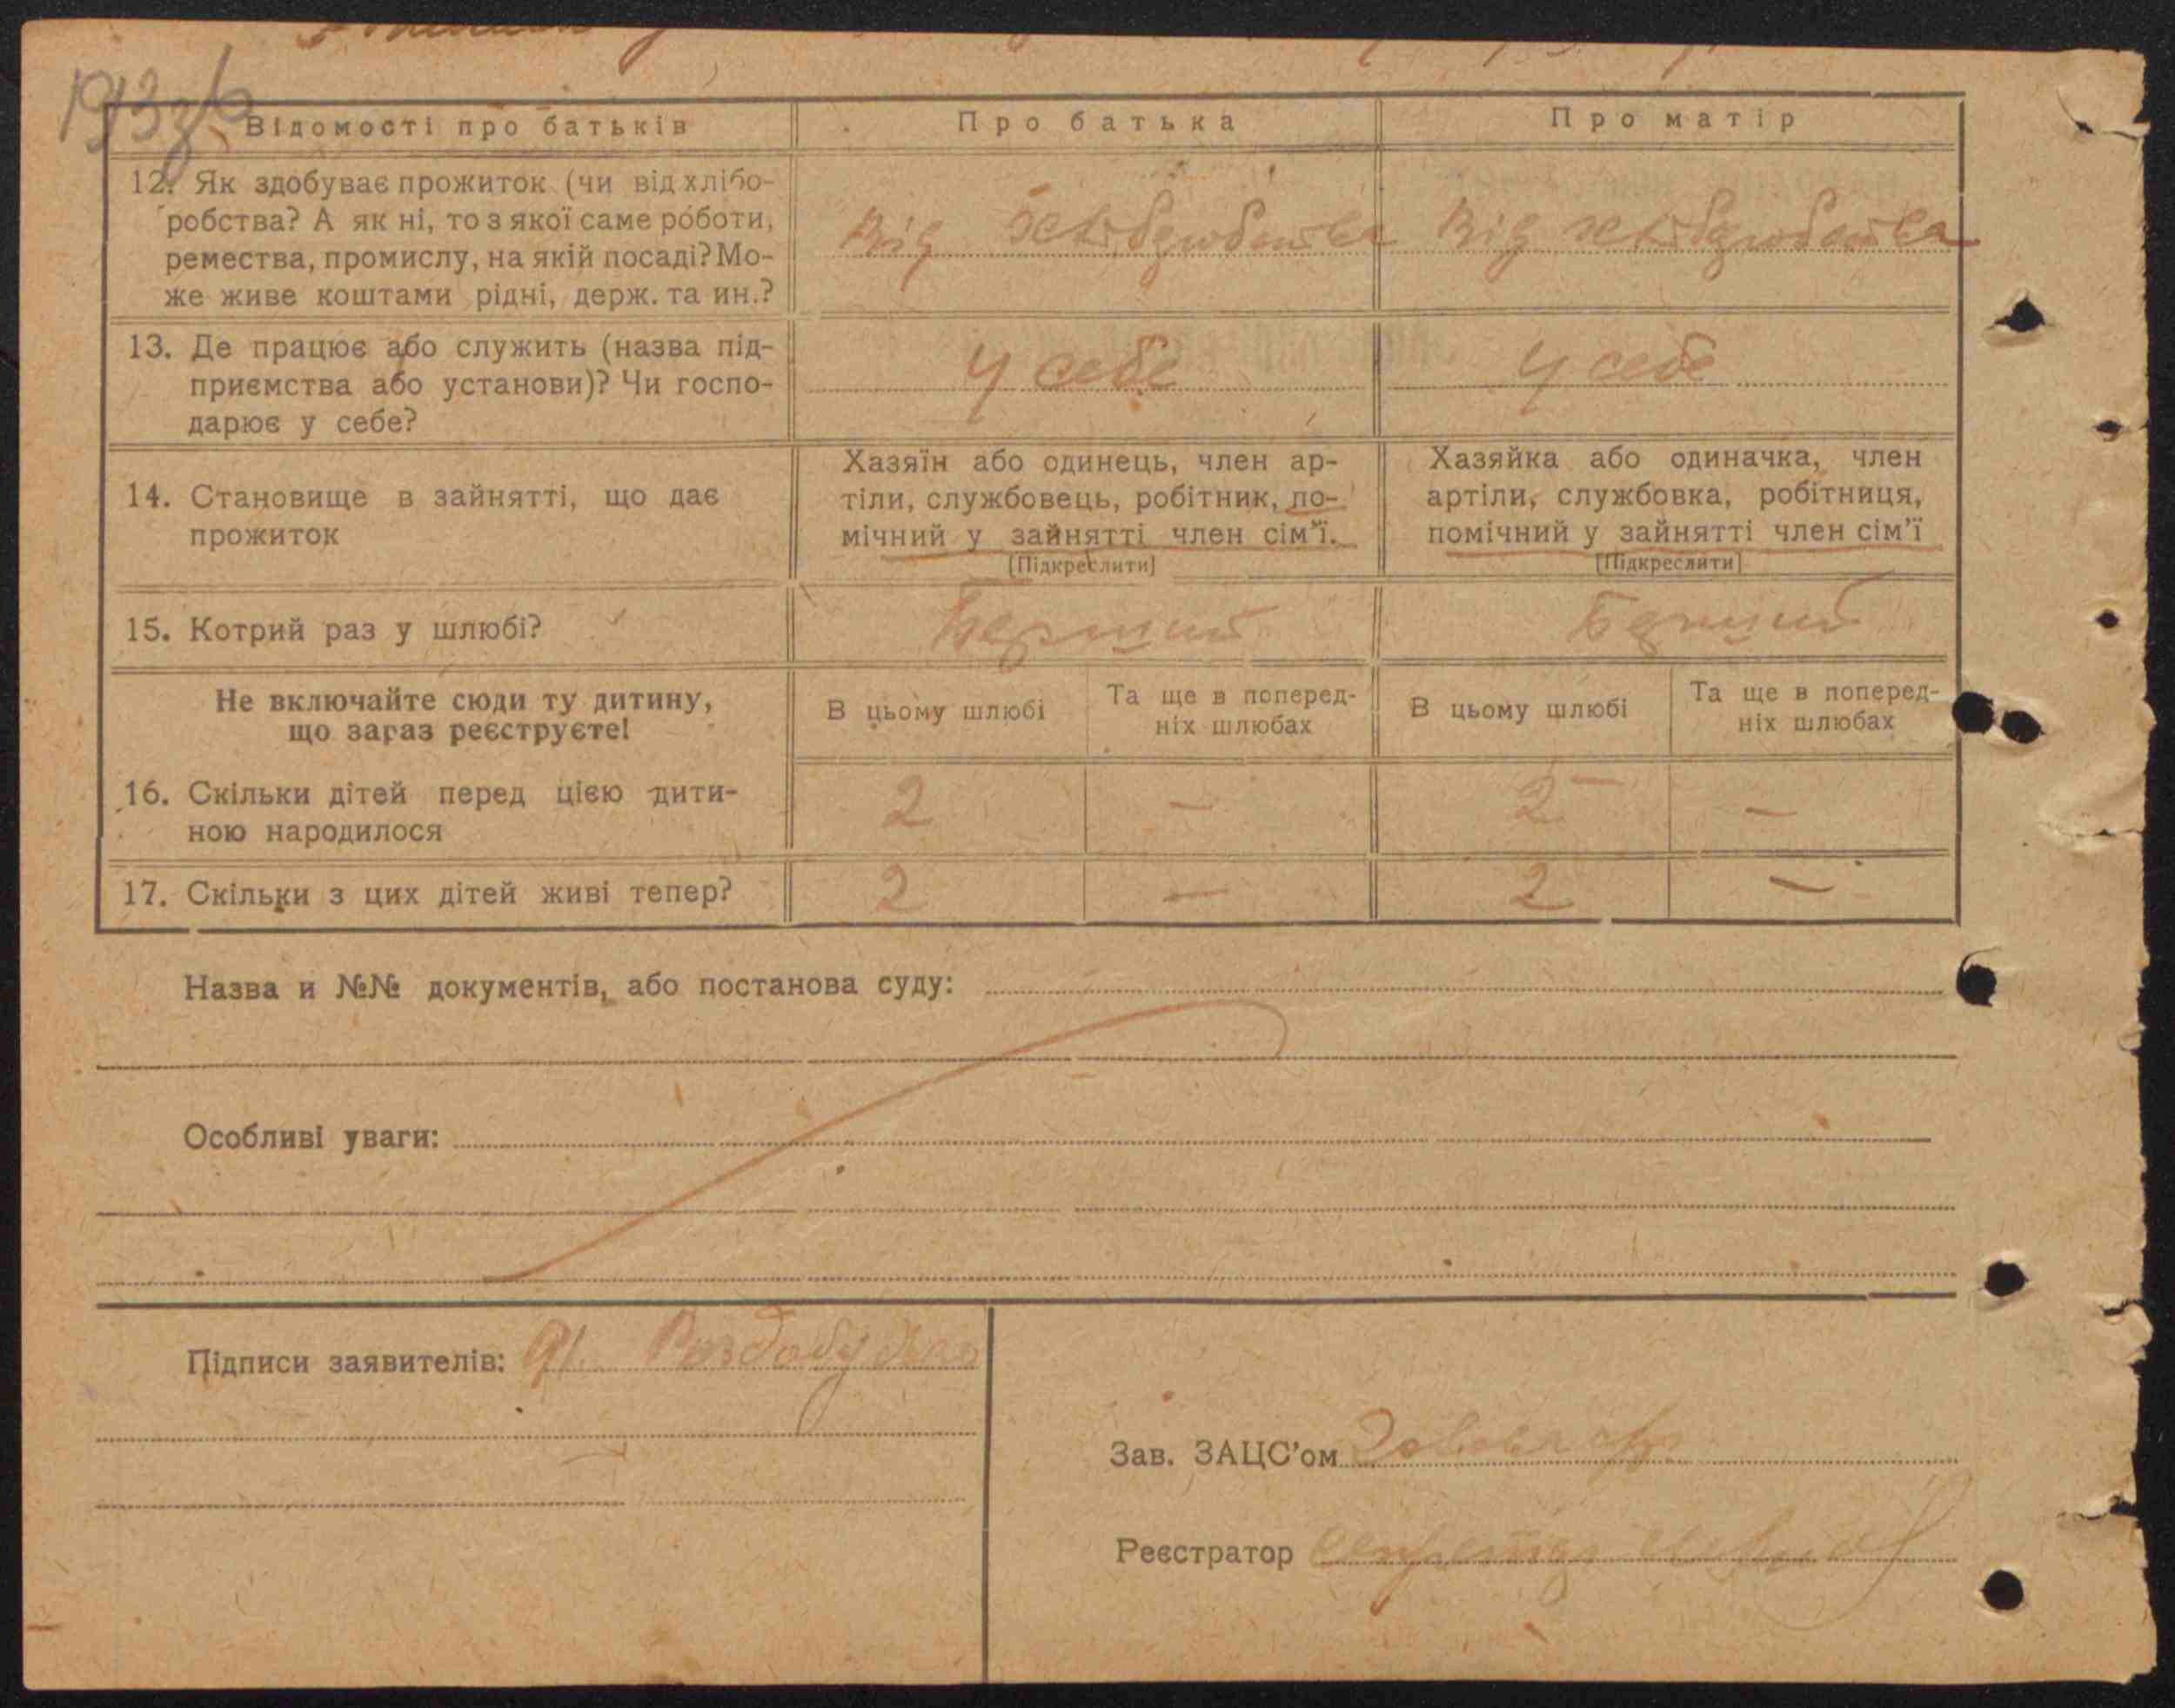 193зв
Відомості про батьків
Про батька
Про матір
12. Як здобуває прожиток (чи від хлібо-
робства? А як ні, то з якої саме роботи,
ремества, промислу, на якій посаді? Мо-
же живе коштами рідні, держ. та ин.?
Від хліборобства
Від хліборобства
13. Де працює або служить (назва під-
приємства або установи)? Чи госпо-
дарює у себе?
У себе
У себе
14. Становище в зайнятті, що дає
прожиток
Хазяїн або одинець, член ар-
тіли, службовець, робітник, по-
мічний у зайнятті член сім'ї.
[Підкреслити]
Хазяйка або одиначка, член
артіли, службовка, робітниця,
помічний у зайнятті член сім'ї
[Підкреслити]
15. Котрий раз у шлюбі?
Перший
Перший
Не включайте сюди ту дитину,
що зараз реєструєте!
В цьому шлюбі
Та ще в поперед-
ніх шлюбах
В цьому шлюбі
Та ще в поперед-
ніх шлюбах
16. Скільки дітей перед цією дити-
ною народилося
2 — 2 —
17. Скільки з цих дітей живі тепер?
2 — 2 —
Назва и №№ документів, або постанова суду:
Особливі уваги:
Підписи заявителів: Роздобудько
Зав. ЗАЦС'ом
Реєстратор Секретар